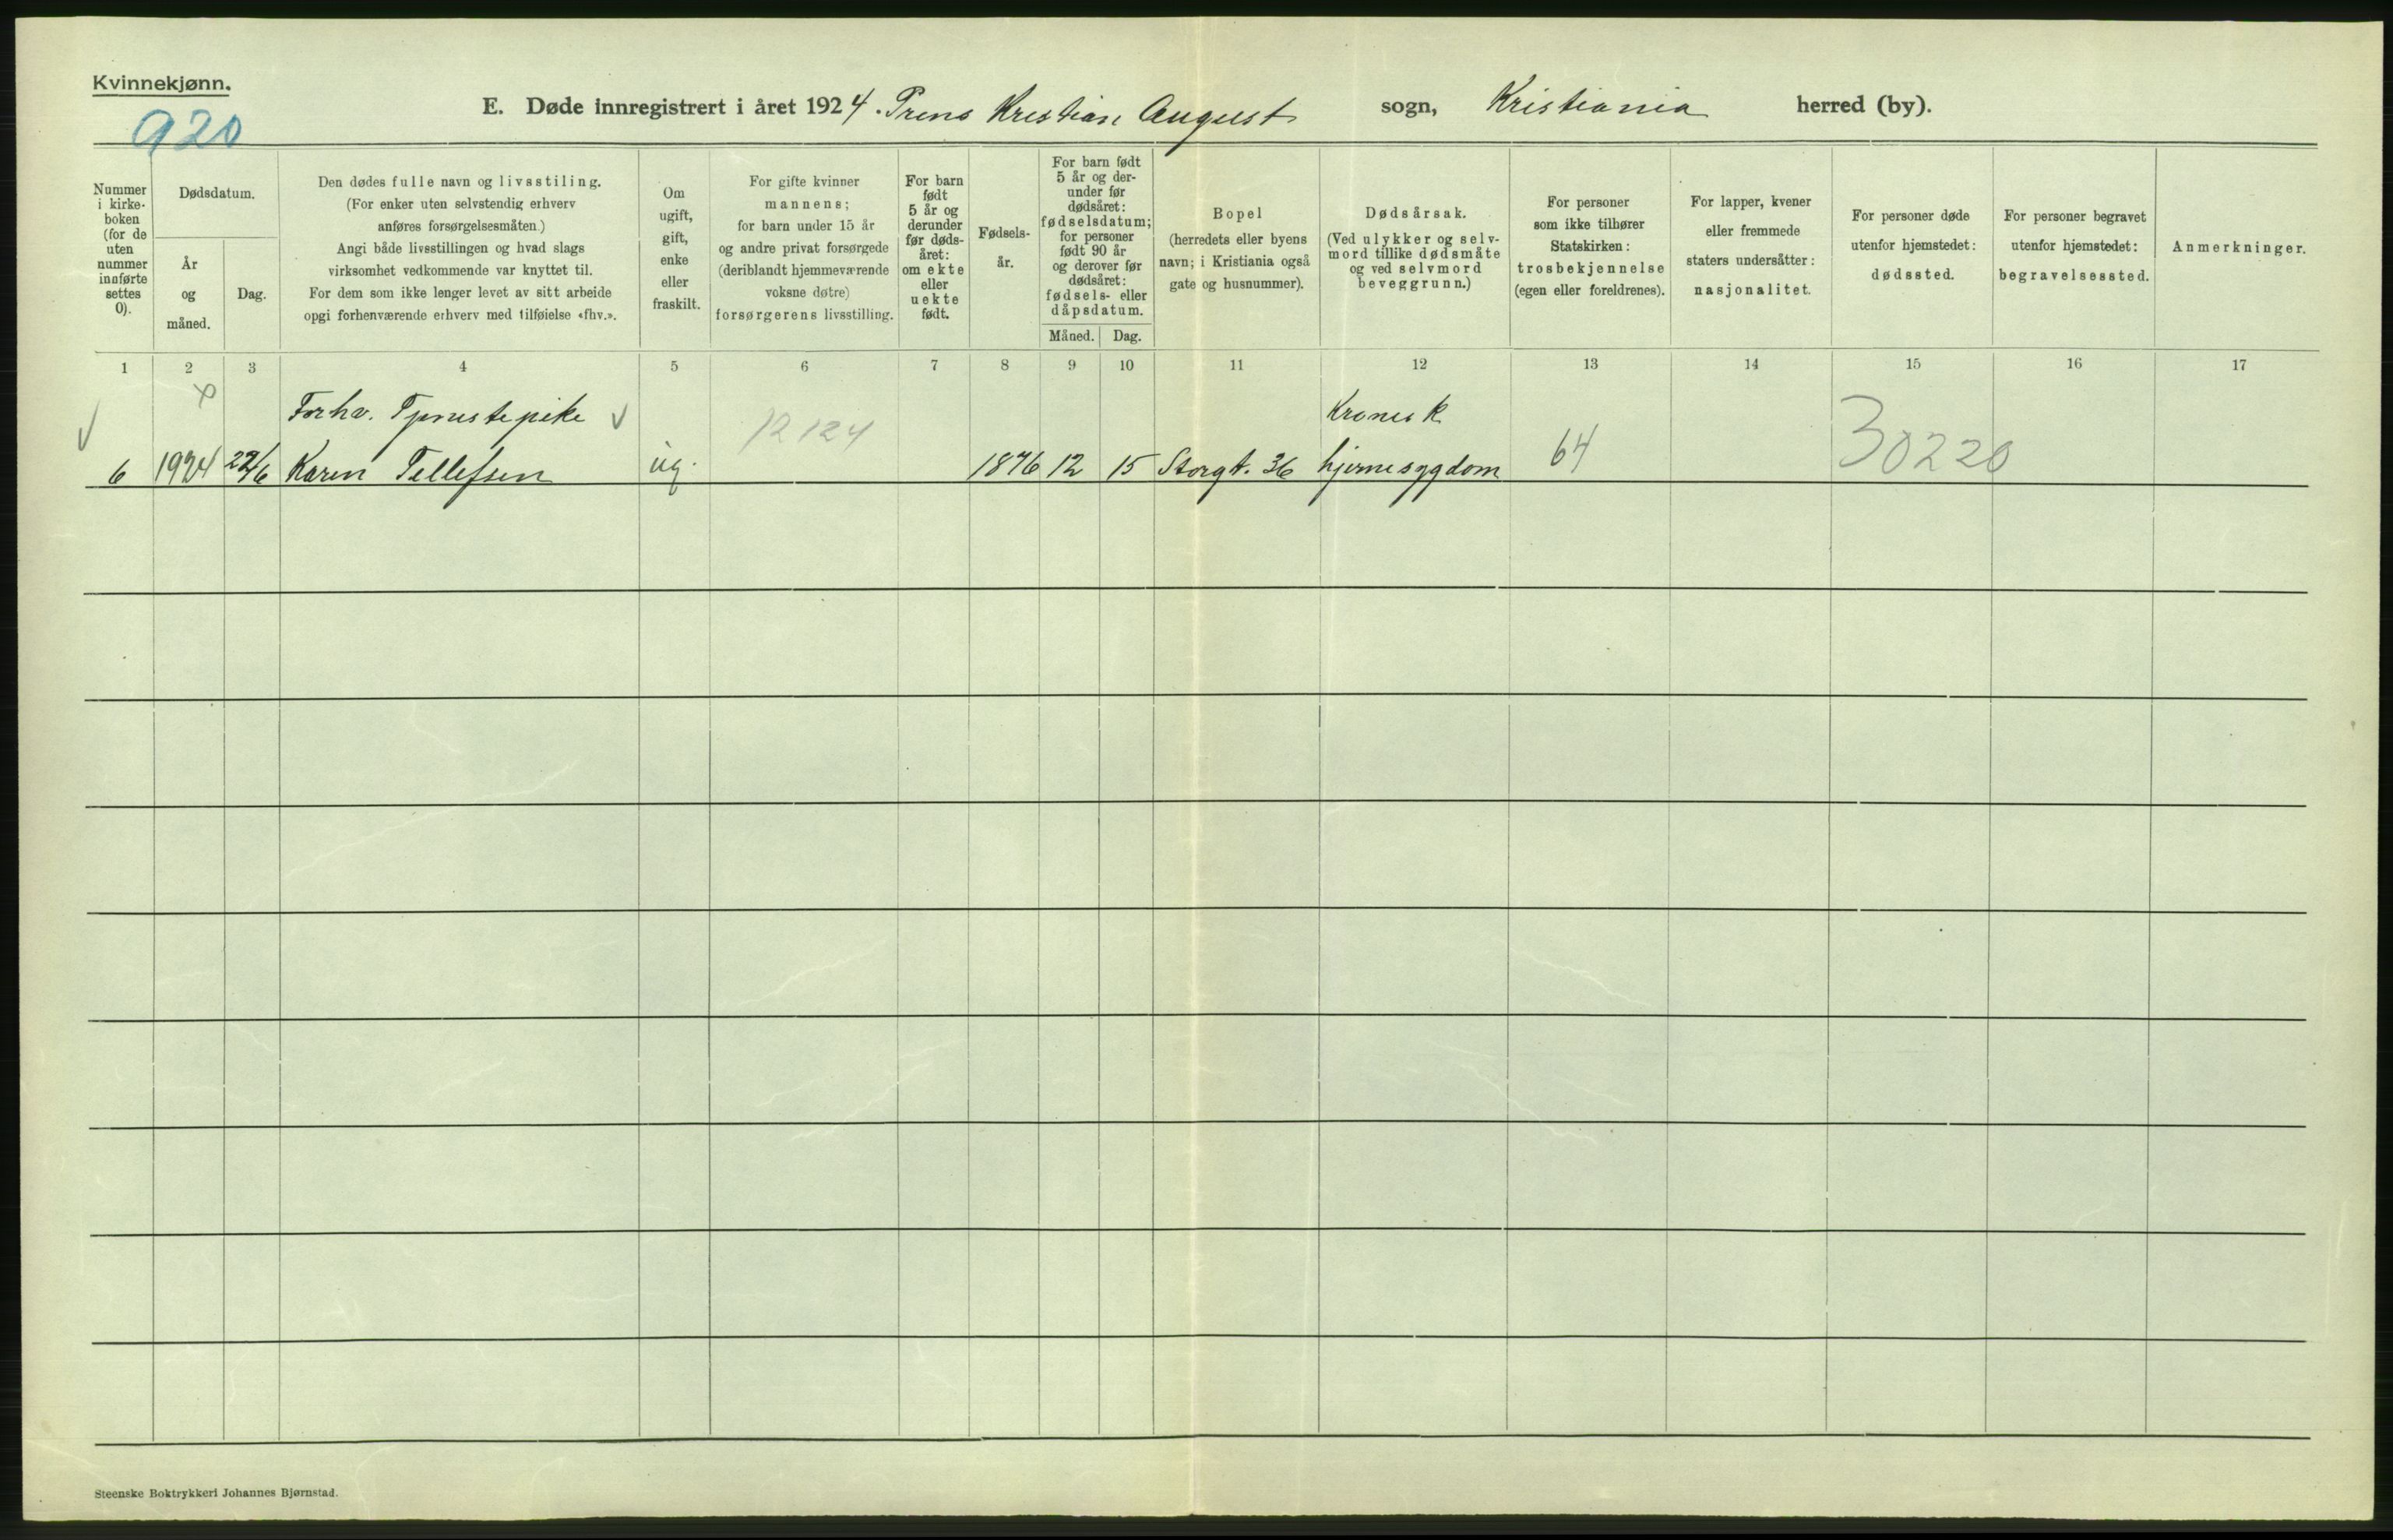 Kvinnekjønn.
920
E. Døde innregistrert i året 1924. Prens Kristian August sogn, Kristiania herred (by).
Nummer
i kirke-
boken
(for de
uten
nummer
innførte
settes
0).
Dødsdatum.
År
og
måned.
Dag.
Den dødes fulle navn og livsstiling.
(For enker uten selvstendig erhverv
anføres forsørgelsesmåten.)
Angi både livsstillingen og hvad slags
virksomhet vedkommende var knyttet til.
For dem som ikke lenger levet av sitt arbeide
opgi forhenværende erhverv med tilføielse «fhv.».
Om
ugift,
gift,
enke
eller
fraskilt.
For gifte kvinner
mannens;
for barn under 15 år
og andre privat forsørgede
(deriblandt hjemmeværende
voksne døtre)
forsørgerens livsstilling.
For barn
født
5 år og
derunder
før døds-
året:
om ekte
eller
uekte
født.
Fødsels-
år.
For barn født
5 år og der-
under før
dødsåret:
fødselsdatum;
for personer
født 90 år
og derover før
dødsåret:
fødsels- eller
dåpsdatum.
Måned. Dag.
Bopel
(herredets eller byens
navn; i Kristiania også
gate og husnummer).
Dødsårsak.
(Ved ulykker og selv-
mord tillike dødsmåte
og ved selvmord
beveggrunn.)
For personer
som ikke tilhører
Statskirken:
trosbekjennelse
(egen eller foreldrenes).
For lapper, kvener
eller fremmede
staters undersåtter:
nasjonalitet.
For personer døde
utenfor hjemstedet:
dødssted.
For personer begravet
utenfor hjemstedet:
begravelsessted.
Anmerkninger.
1 2 3 4 5 6 7 8 9 10 11 12 13 14 15 16 17
Forhv. Tjenestepike 12124 Kronisk
6 1924 22/6 Karen Tellefsen ug. 1876 12 15 Storgt. 36 hjernesygdom 64 30220
Steenske Boktrykkeri Johannes Bjørnstad.